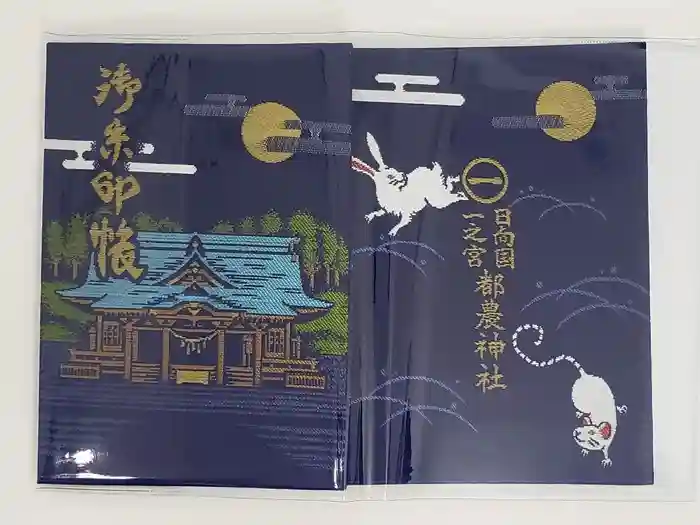 御朱印帳
一
日向国
一之宮
都農神社